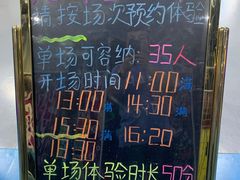 请按场次预约体验
单场可容纳：35人
开场时间 11:00满
13:00满 14:30满
15:30满 16:20
18:30
单场体验时长50分